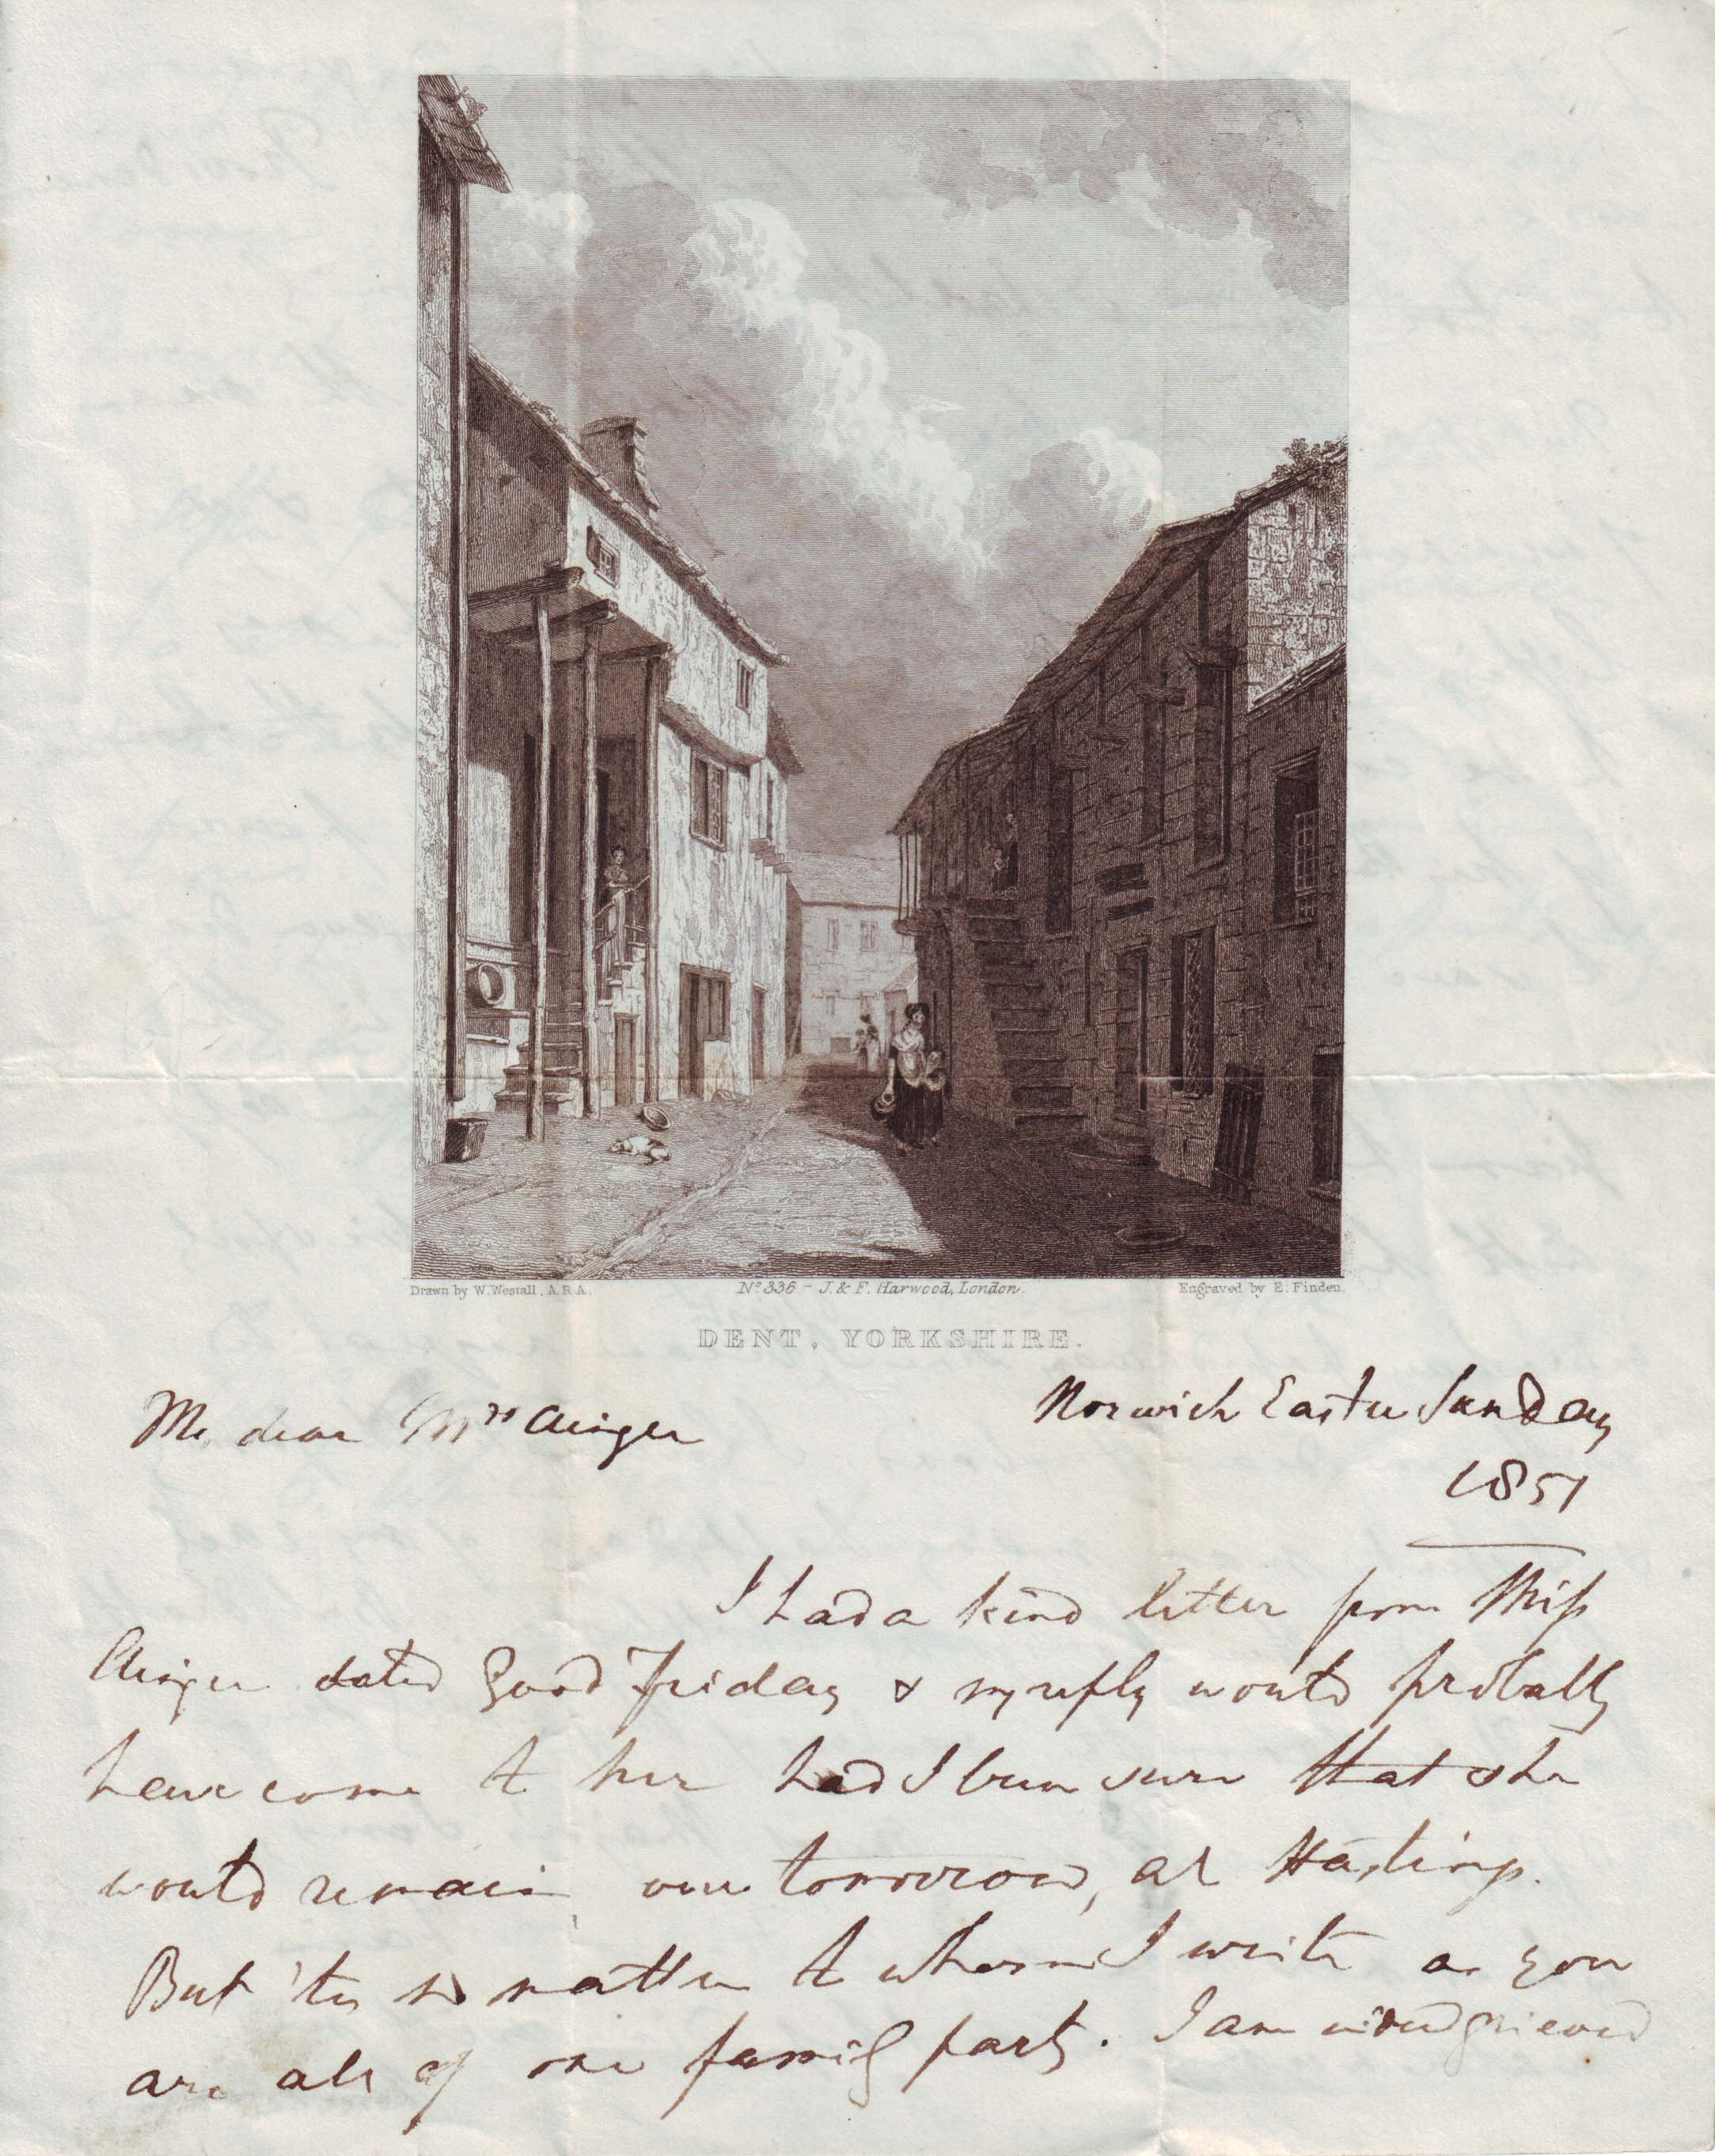 Drawn by W. Westall, A.R.A.
No. 336 - J. & F. Harwood, London.
Engraved by E. Finden.
DENT, YORKSHIRE.
Norwich Easter Sunday
1851
My dear Mrs Ainger
I had a kind letter from Miss
Ainger dated Good Friday & my reply would probably
have come to her had I been sure that she
would remain, over tomorrow, at Hastings.
But 'tis no matter to whom I write as you
are all of one family party. I am indeed grieved